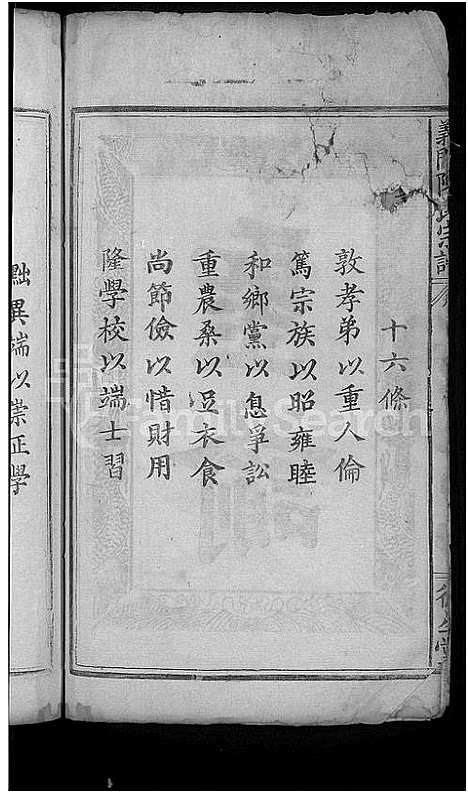 義門陳氏宗譜
十六條
敦孝弟以重人倫
篤宗族以昭雍睦
和鄉黨以息爭訟
重農桑以足衣食
尚節儉以惜財用
隆學校以端士習
黜異端以崇正學
FamilySearch